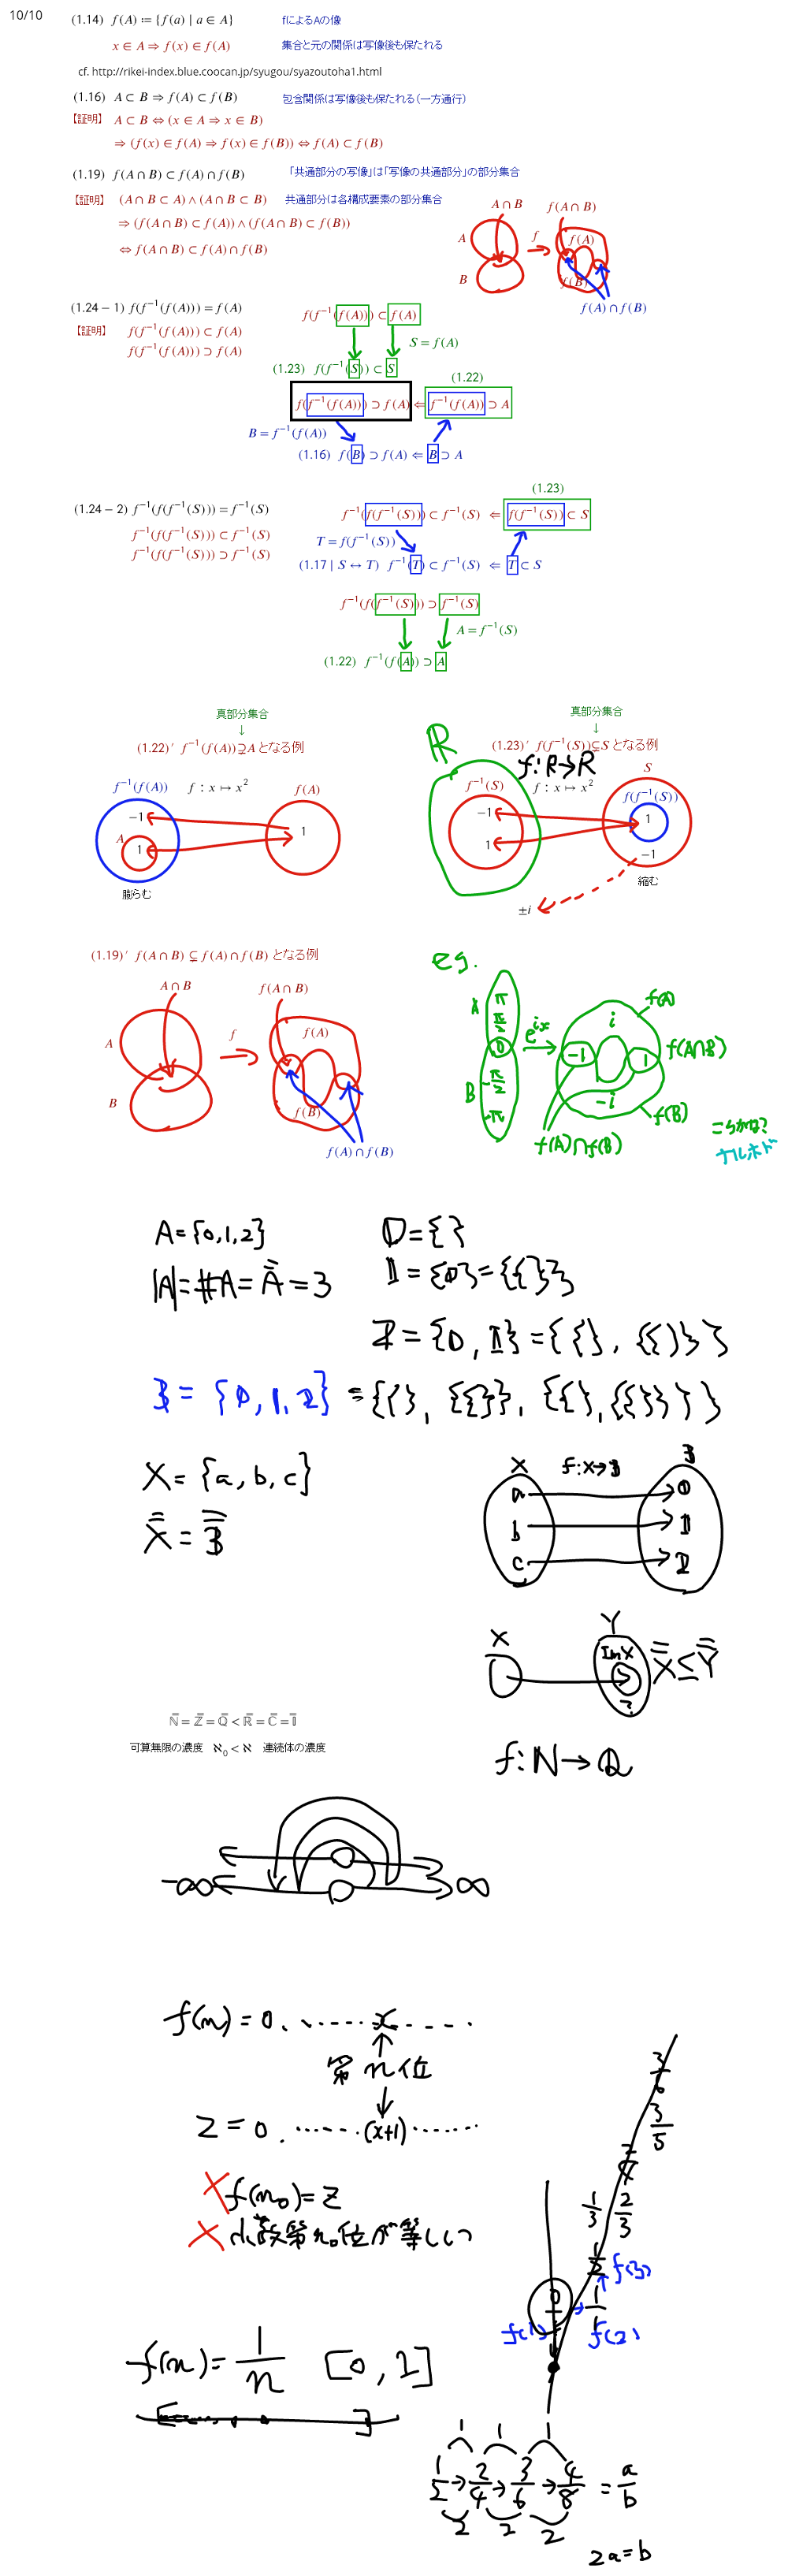 10/10
(1.14) f(A) ≔ {f(a) | a ∈ A} fによるAの像
x ∈ A ⇒ f(x) ∈ f(A) 集合と元の関係は写像後も保たれる
cf. http://rikei-index.blue.coocan.jp/syugou/syazoutoha1.html
(1.16) A ⊂ B ⇒ f(A) ⊂ f(B) 包含関係は写像後も保たれる（一方通行）
【証明】 A ⊂ B ⇔ (x ∈ A ⇒ x ∈ B)
⇒ (f(x) ∈ f(A) ⇒ f(x) ∈ f(B)) ⇔ f(A) ⊂ f(B)
(1.19) f(A ∩ B) ⊂ f(A) ∩ f(B) 「共通部分の写像」は「写像の共通部分」の部分集合
【証明】 (A ∩ B ⊂ A) ∧ (A ∩ B ⊂ B) 共通部分は各構成要素の部分集合
⇒ (f(A ∩ B) ⊂ f(A)) ∧ (f(A ∩ B) ⊂ f(B))
⇔ f(A ∩ B) ⊂ f(A) ∩ f(B)
A ∩ B f(A ∩ B)
A f f(A)
B f(B)
f(A) ∩ f(B)
(1.24 − 1) f(f⁻¹(f(A))) = f(A)
【証明】 f(f⁻¹(f(A))) ⊂ f(A)
f(f⁻¹(f(A))) ⊃ f(A)
f(f⁻¹(f(A))) ⊂ f(A)
S = f(A)
(1.23) f(f⁻¹(S)) ⊂ S
(1.22)
f(f⁻¹(f(A))) ⊃ f(A) ⇐ f⁻¹(f(A)) ⊃ A
B = f⁻¹(f(A))
(1.16) f(B) ⊃ f(A) ⇐ B ⊃ A
(1.24 − 2) f⁻¹(f(f⁻¹(S))) = f⁻¹(S)
f⁻¹(f(f⁻¹(S))) ⊂ f⁻¹(S)
f⁻¹(f(f⁻¹(S))) ⊃ f⁻¹(S)
(1.23)
f⁻¹(f(f⁻¹(S))) ⊂ f⁻¹(S) ⇐ f(f⁻¹(S)) ⊂ S
T = f(f⁻¹(S))
(1.17 | S ↔ T) f⁻¹(T) ⊂ f⁻¹(S) ⇐ T ⊂ S
f⁻¹(f(f⁻¹(S))) ⊃ f⁻¹(S)
A = f⁻¹(S)
(1.22) f⁻¹(f(A)) ⊃ A
真部分集合
↓
(1.22)′ f⁻¹(f(A)) ⊋ A となる例
f⁻¹(f(A)) f : x ↦ x² f(A)
−1
A 1 1
膨らむ
真部分集合
↓
(1.23)′ f(f⁻¹(S)) ⊊ S となる例
ℝ f:R→R
f⁻¹(S) f : x ↦ x² S
f(f⁻¹(S))
−1 1
1 −1
±i 縮む
(1.19)′ f(A ∩ B) ⊊ f(A) ∩ f(B) となる例
A ∩ B f(A ∩ B)
A f f(A)
B f(B)
f(A) ∩ f(B)
eg.
A π π/2 0 e^{ix} i f(A)
−1 1 f(A∩B)
B −π/2 −π −i f(B)
f(A)∩f(B)
こうかな?
ナルホド
A={0,1,2} 0={}
|A|=#A=A̿=3 1={0}={{}}
2={0,1}={{},{{}}}
3={0,1,2}={{},{{}},{{},{{}}}}
X={a,b,c}
X̿=3̿
X f:X→3 3
a 0
b 1
c 2
X Y
Im X X̿≤Y̿
ℕ̿ = ℤ̿ = ℚ̿ < ℝ̿ = ℂ̿ = 𝕀̿
可算無限の濃度 ℵ₀ < ℵ 連続体の濃度
f:ℕ→ℚ
−∞ ∞
f(n)=0.······x·····
↑
第n位
↓
Z=0.······(x+1)······
× f(n₀)=Z
× 小数第n₀位が等しい
f(n)=1/n [0,1]
3/6
3/5
2/4
1/3 2/3
1/2 f(3)
0/1 1/1
f(1) f(2)
1 1 1
1/2→2/4→3/6→4/8 =a/b
2 2 2
2a=b